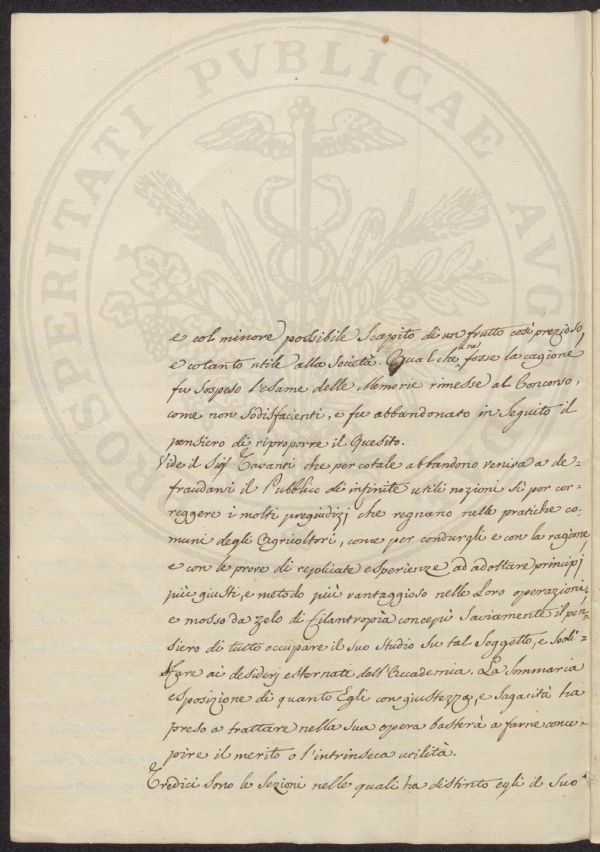 PROSPERITATI PVBLICAE AVG
e col minore possibile Scapito di un frutto così prezioso,
e cotanto utile alla Società. Qual che ne fosse la cagione
fu Sospeso l'esame delle Memorie rimesse al Concorso,
come non Sodisfacienti, e fu abbandonato in Seguito il
pensiero di riproporre il Quesito.
Vide il Sig. Tavanti che per cotale abbandono veniva a de=
fraudarsi il Pubblico di infinite utili nozioni Si per cor=
reggere i molti pregiudizj che regnano nelle pratiche co=
muni degli Agricoltori, come per condurgli e con la ragione,
e con le prove di replicate esperienze ad adottare principj
più giusti, e metodo più vantaggioso nelle loro operazioni,
e mosso da zelo di Filantropia concepì Saviamente il pen=
siero di tutto occupare il Suo Studio Su tal Soggetto, e Sodi=
sfare ai desiderj esternati dall'Accademia. La Sommaria
esposizione di quanto Egli con giustezza, e Sagacità ha
preso a trattare nella Sua opera basterà a farne conce=
pire il merito o l'intrinseca utilità.
Tredici Sono le Sezioni nelle quali ha distinto egli il Suo